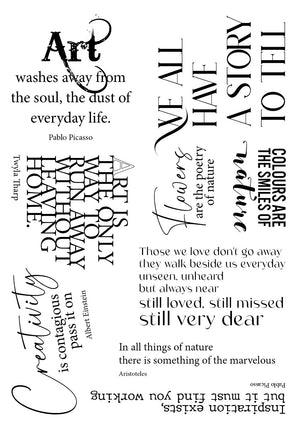 Art
washes away from
the soul, the dust of
everyday life.
Pablo Picasso
WE ALL
HAVE
A STORY
TELL TO
Flowers
are the poetry
of nature
COLOURS ARE
THE SMILES OF
nature
ART IS
THE ONLY
WAY TO
RUN AWAY
WITHOUT
LEAVING
HOME.
Twyla Tharp
Creativity
is contagious
pass it on
Albert Einstein
Those we love don't go away
they walk beside us everyday
unseen, unheard
but always near
still loved, still missed
still very dear
In all things of nature
there is something of the marvelous
Aristoteles
Inspiration exists,
but it must find you working
Pablo Picasso